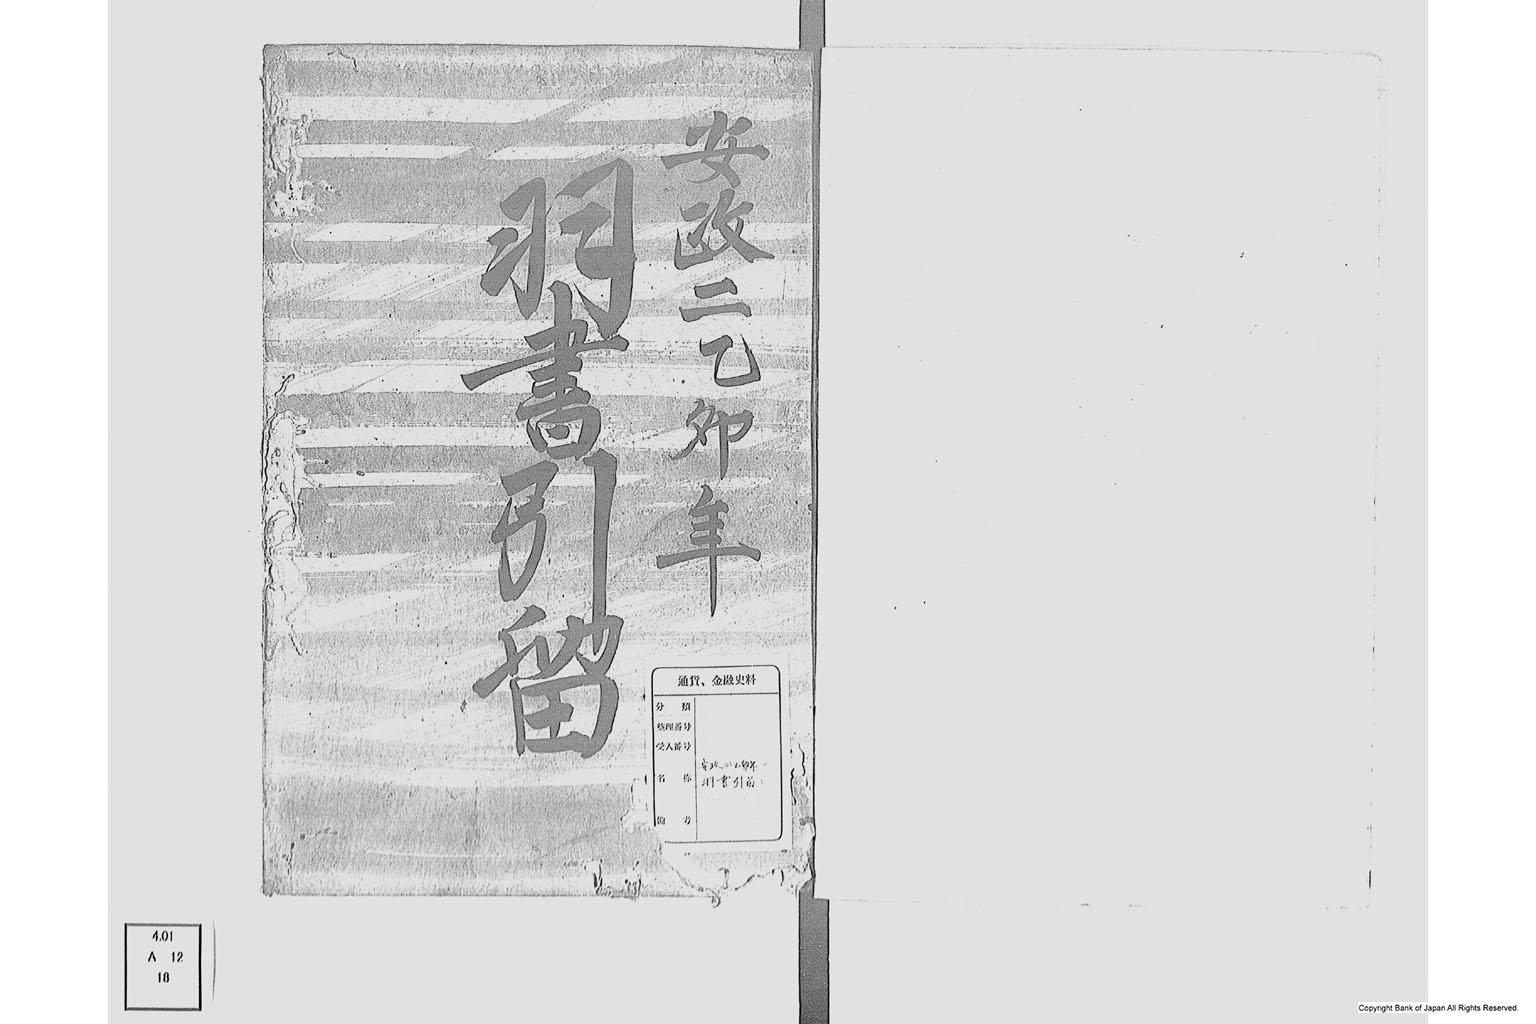 安政二乙卯年
羽書引留
通貨、金融史料
分類
整理番号
受入番号
名称
安政二乙卯年
羽書引留
備考
4.01
A 12
18
Copyright Bank of Japan All Rights Reserved.